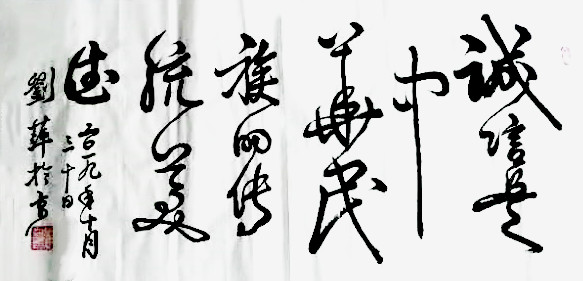 誠信是
中
華民
族的传
統美
德
二〇一九年十月
三十日
劉萍於